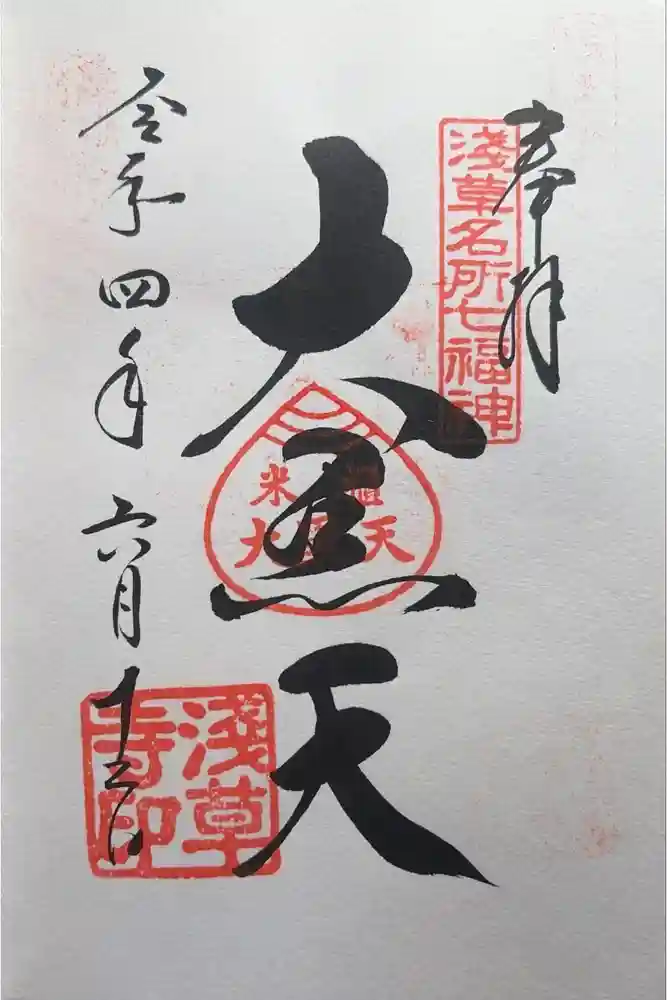 奉拝
淺草名所七福神
大黒天
米櫃
大黒天
令和四年六月十三日
淺草寺印